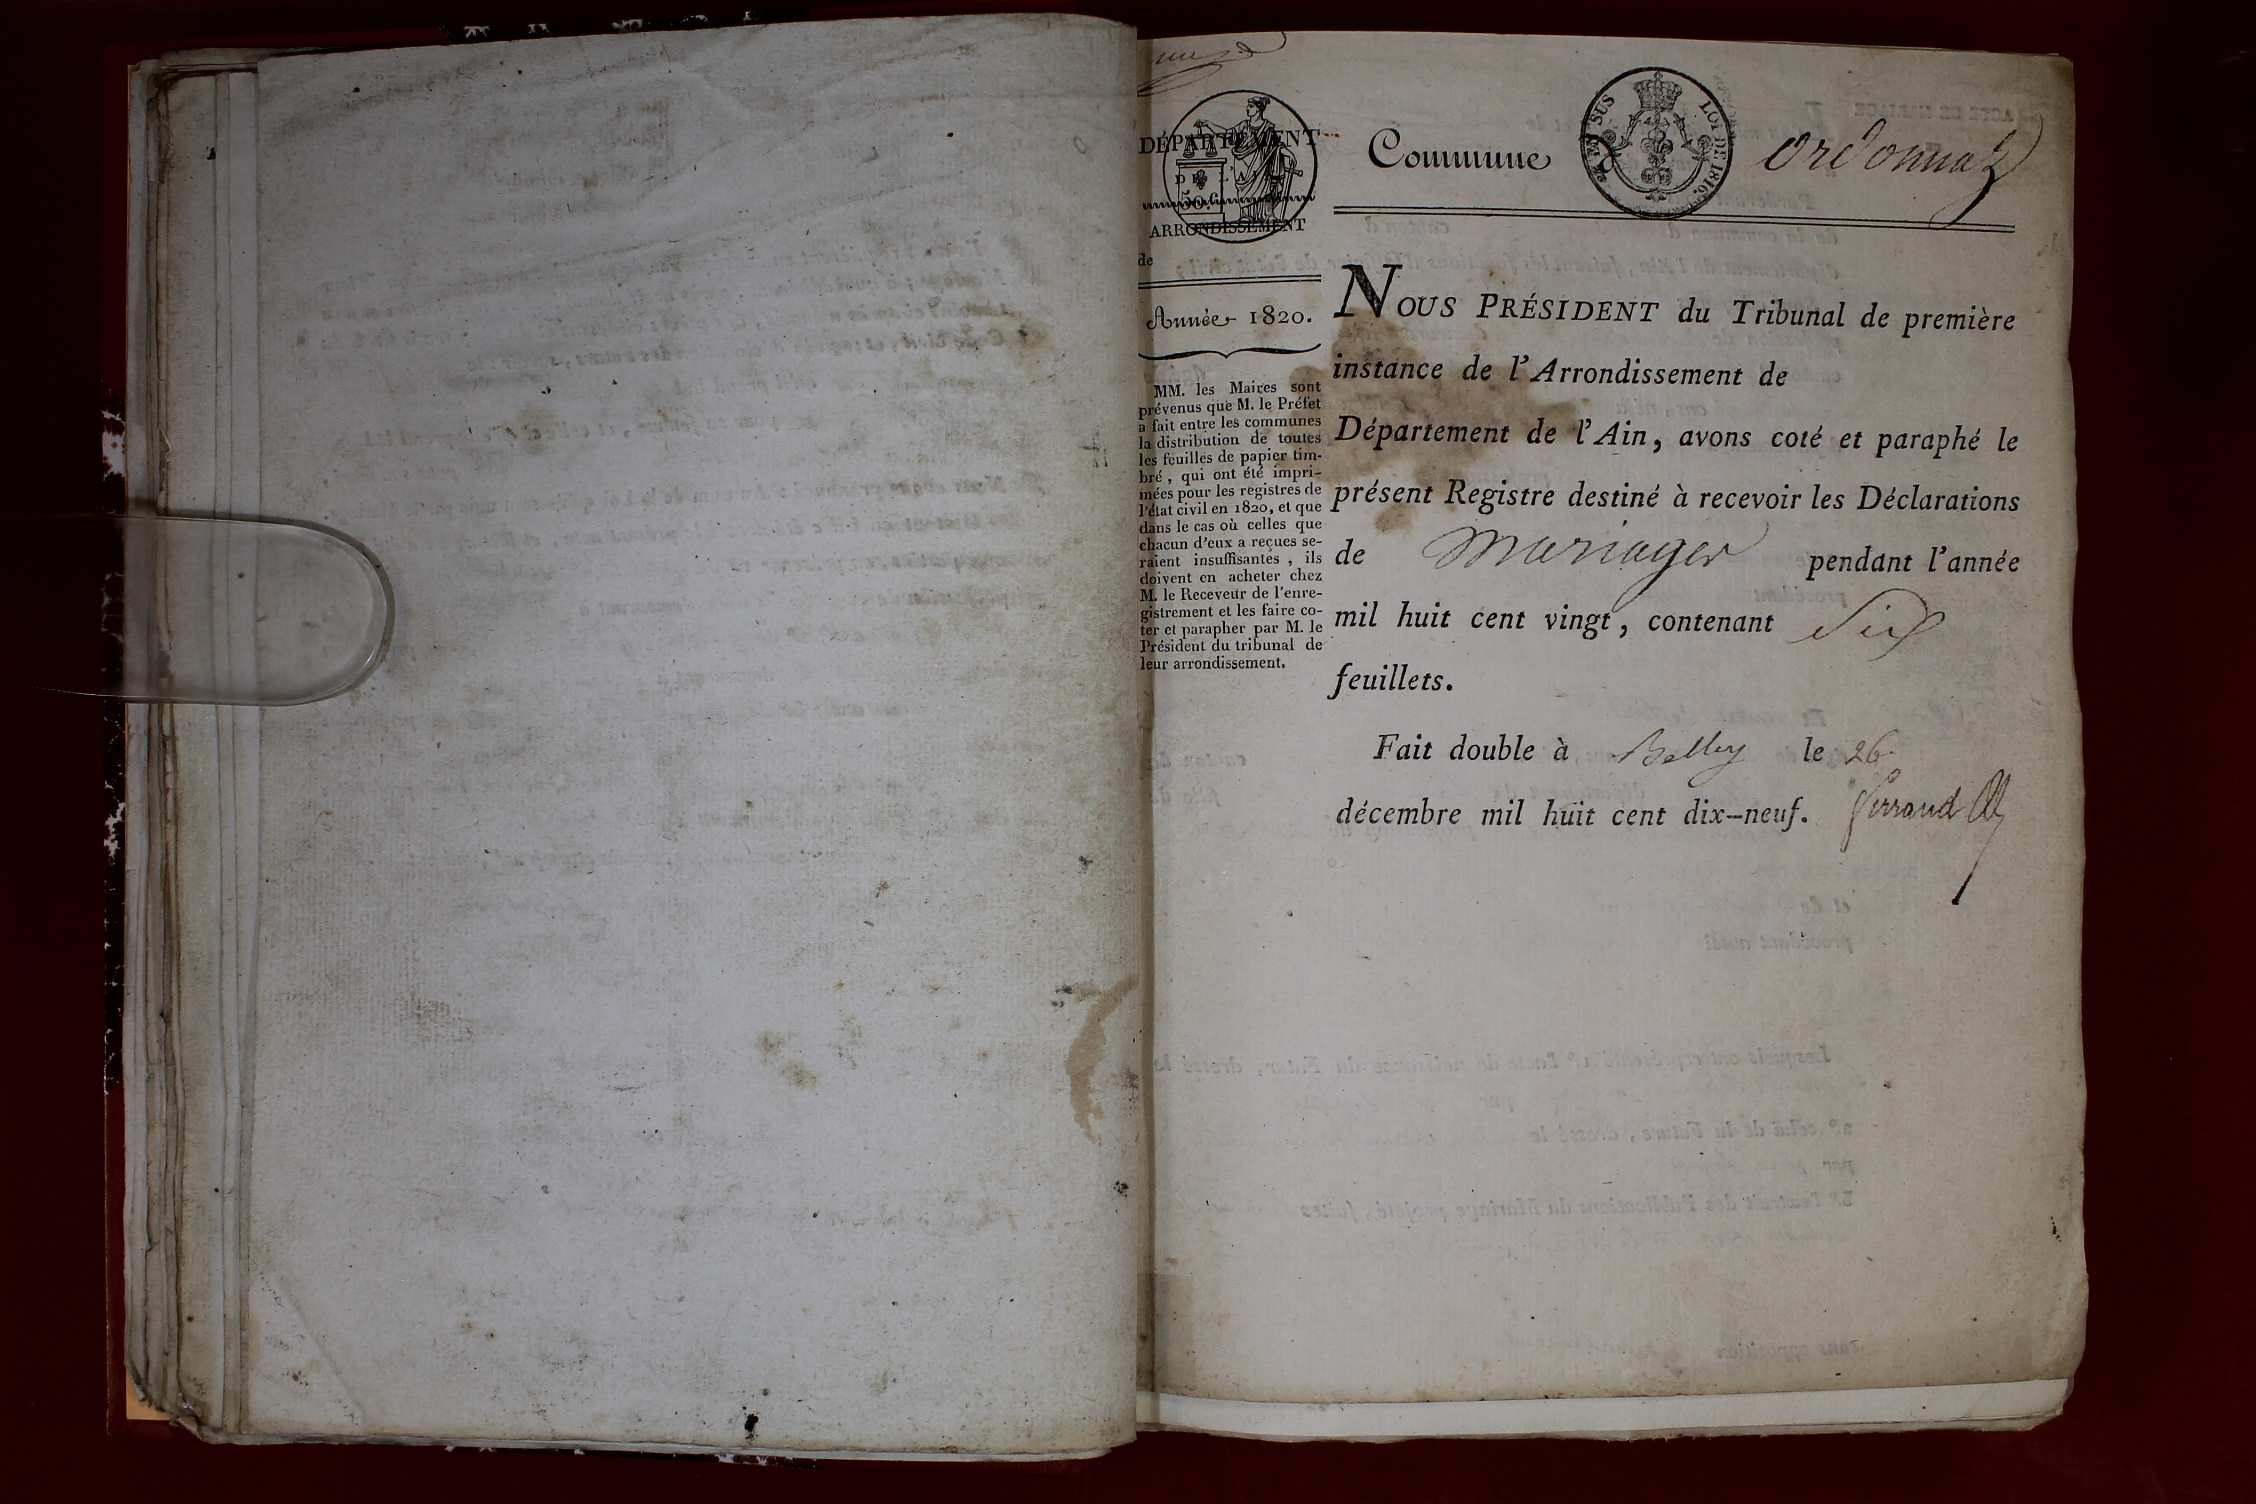 DÉPARTEMENT
DE L'AIN
50 c.
ARRONDISSEMENT
de
Année 1820.
MM. les Maires sont
prévenus que M. le Préfet
a fait entre les communes
la distribution de toutes
les feuilles de papier tim-
bré, qui ont été impri-
mées pour les registres de
l'état civil en 1820, et que
dans le cas où celles que
chacun d'eux a reçues se-
raient insuffisantes, ils
doivent en acheter chez
M. le Receveur de l'enre-
gistrement et les faire co-
ter et parapher par M. le
Président du tribunal de
leur arrondissement.
Commune d ordonnaz
EN SUS LOI DE 1816.
NOUS PRÉSIDENT du Tribunal de première
instance de l'Arrondissement de
Département de l'Ain, avons coté et paraphé le
présent Registre destiné à recevoir les Déclarations
de mariages pendant l'année
mil huit cent vingt, contenant Six
feuillets.
Fait double à Belley le 26
décembre mil huit cent dix-neuf. ferrand